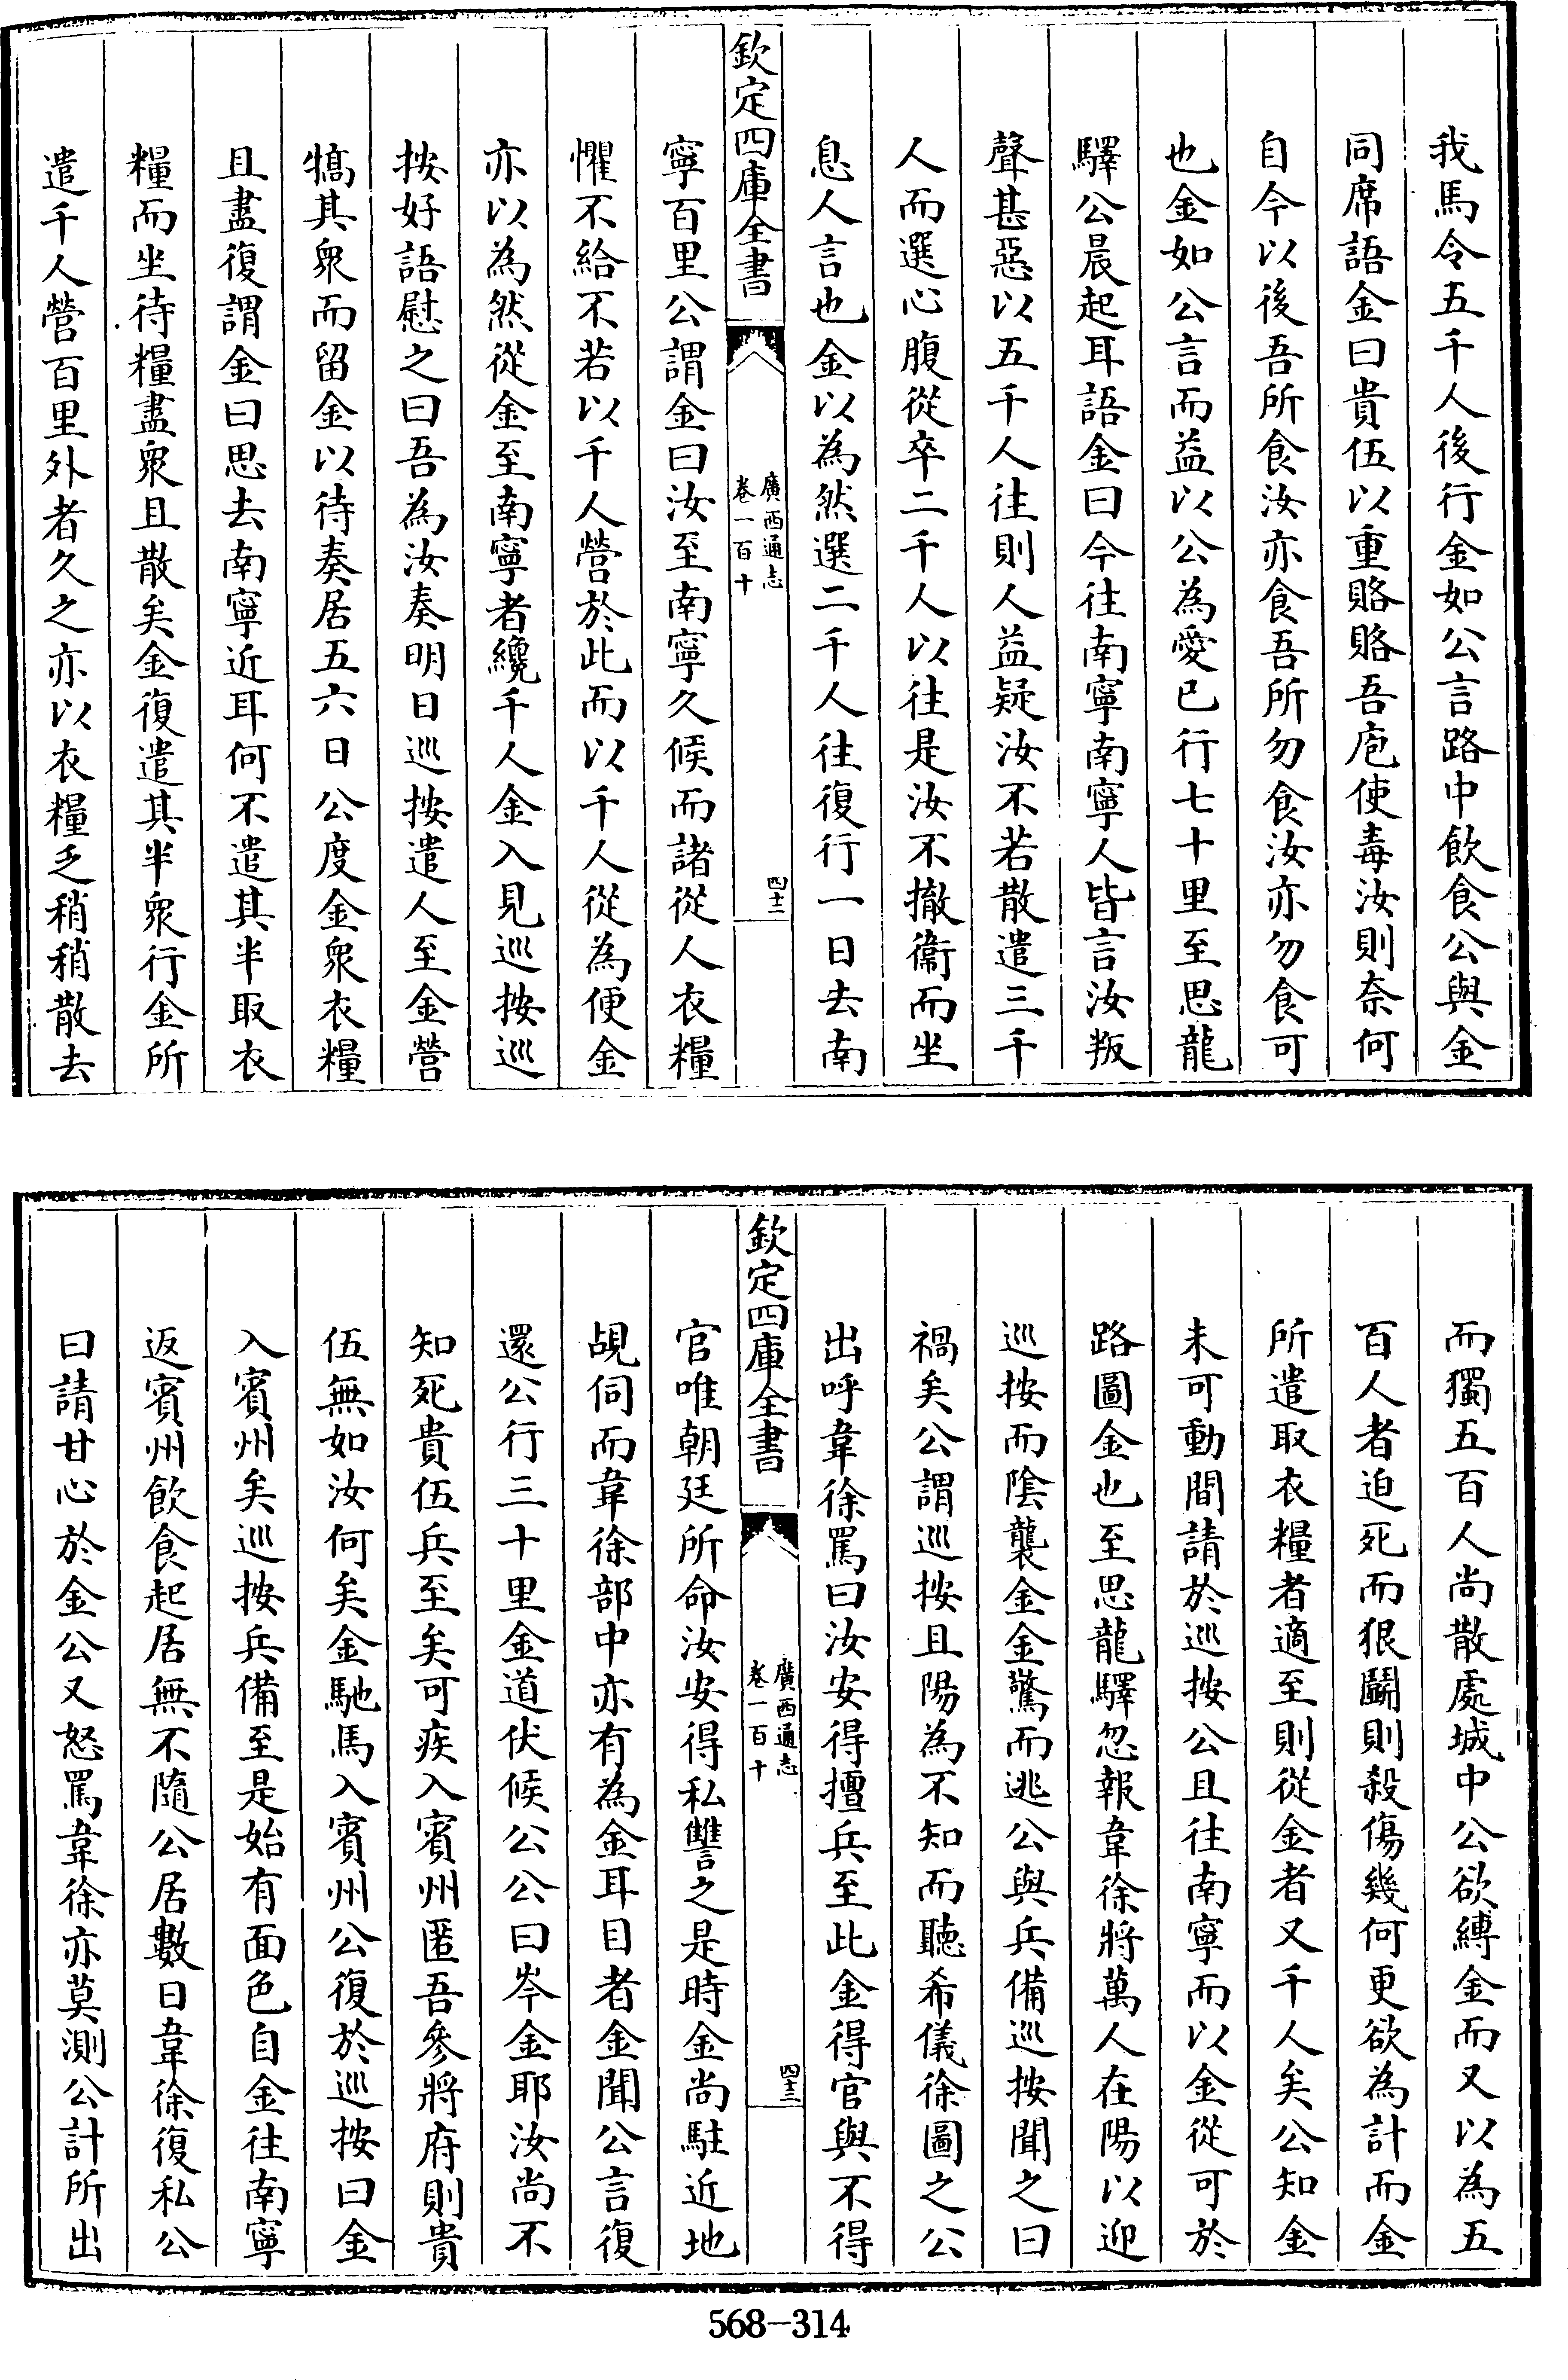 我馬令五千人後行金如公言路中飲食公與金
同席語金曰貴伍以重賂賂吾庖使毒汝則奈何
自今以後吾所食汝亦食吾所勿食汝亦勿食可
也金如公言而益以公為愛已行七十里至思龍
驛公晨起耳語金曰今往南寧南寧人皆言汝叛
聲甚惡以五千人往則人益疑汝不若散遣三千
人而選心腹從卒二千人以往是汝不撤衞而坐
息人言也金以為然選二千人往復行一日去南
欽定四庫全書
廣西通志
卷一百十
四十二
寧百里公謂金曰汝至南寧久候而諸從人衣糧
懼不給不若以千人營於此而以千人從為便金
亦以為然從金至南寧者纔千人金入見巡按巡
按好語慰之曰吾為汝奏明日巡按遣人至金營
犒其衆而留金以待奏居五六日公度金衆衣糧
且盡復謂金曰思去南寧近耳何不遣其半取衣
糧而坐待糧盡衆且散矣金復遣其半衆行金所
遣千人營百里外者久之亦以衣糧乏稍稍散去
而獨五百人尚散處城中公欲縛金而又以為五
百人者迫死而狠鬭則殺傷幾何更欲為計而金
所遣取衣糧者適至則從金者又千人矣公知金
未可動間請於巡按公且往南寧而以金從可於
路圖金也至思龍驛忽報韋徐將萬人在陽以迎
巡按而陰襲金金驚而逃公與兵備巡按聞之曰
禍矣公謂巡按且陽為不知而聽希儀徐圖之公
出呼韋徐罵曰汝安得擅兵至此金得官與不得
欽定四庫全書
廣西通志
卷一百十
四十三
官唯朝廷所命汝安得私讐之是時金尚駐近地
覘伺而韋徐部中亦有為金耳目者金聞公言復
還公行三十里金道伏候公公曰岑金耶汝尚不
知死貴伍兵至矣可疾入賓州匿吾參將府則貴
伍無如汝何矣金馳馬入賓州公復於巡按曰金
入賓州矣巡按兵備至是始有面色自金往南寧
返賓州飲食起居無不隨公居數日韋徐復私公
曰請甘心於金公又怒罵韋徐亦莫測公計所出
568-314